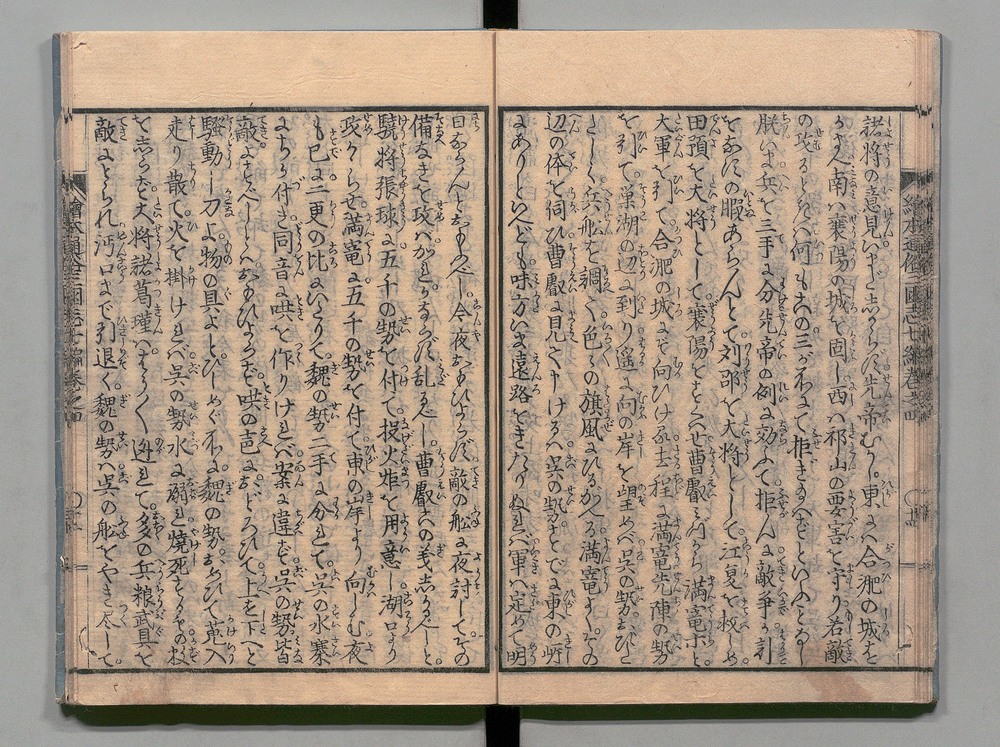 諸将の意見いまだ志からず先帝むかし東ハ合肥の城を
かまへ南ハ襄陽の城を固し西ハ祁山の要害を守り若敵
の攻るときハ何も此の三がに於て拒ぎ
朕いま兵を三手に分先帝の例に効ふて拒んに敵争で計
をなすの暇あらんとて刘邵を大将として江夏を救しめ
田預を大将として襄陽をすくハせ曹叡みづから満寵ホと
大軍を引て合肥の城にぞ向ひける去程に満寵先陣の勢
を引て巣湖の辺に到り遥に向の岸を望めバ呉の勢おびたゝ
しく兵舩を調へ色々の旗風にひるがへる満寵
辺の体を伺ひ曹叡に見へ申けるハ呉の勢すでに東の岍
にありしといへども味方いま遠路をきたりぬれバ軍ハ定めて明
日ならんとおもふべし今夜おもひよらず敵の舩に夜討してその
備なきを攻べかれかならず乱るべし曹叡此の義志かるべしと
驍将張球に五千の勢を付て投火炬を用意し湖口より
攻かゝらせ満寵に五千の勢を付て東の岸より向しむ夜
も已に二更の比にいたりて魏の勢二手に分れて呉の水寨
にちか付き同音に哄を作りけれバ案に違ず呉の勢皆
敵よすべしとハおもひよらず哄の声におどろひて上を下へと
騒動し刀よ物の具よとひしめく所に魏の勢おめひて革入
走り散て火を掛けれバ呉の勢水に溺れ焼死
を志らず大将諸葛瑾はうく迯れて多の兵粮武具を
敵にとられ沔口まで引退く魏の勢ハ呉の舩をやき尽して